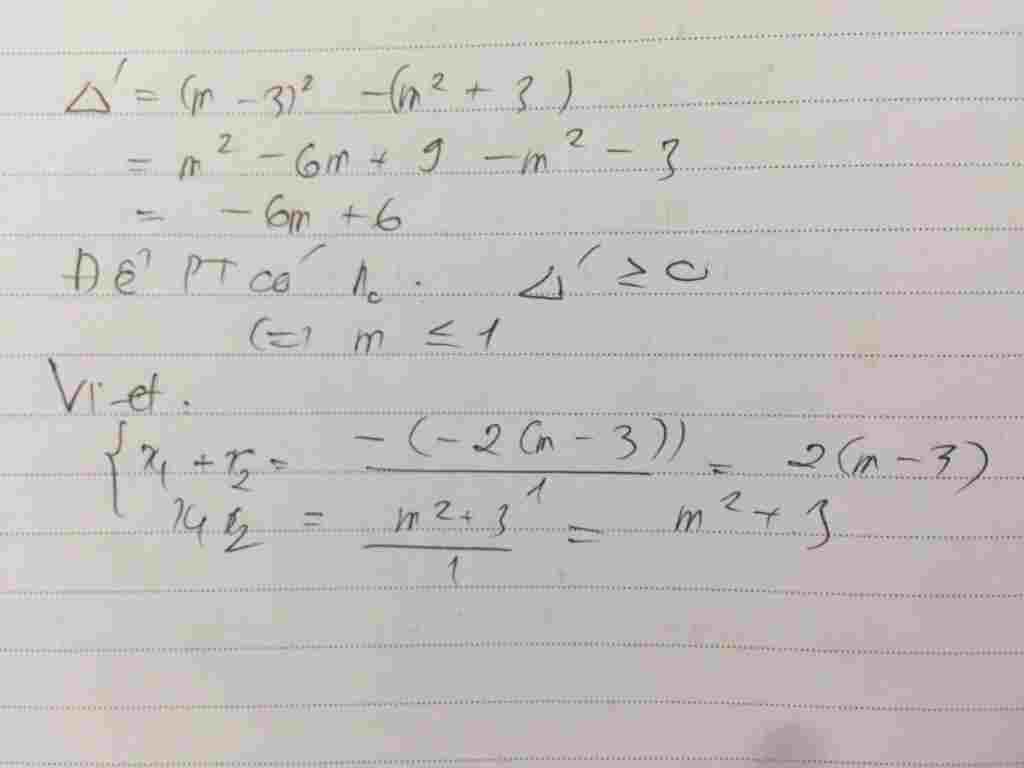 Δ' = (m - 3)² - (m² + 3)
= m² - 6m + 9 - m² - 3
= - 6m + 6
Để PT có n₀. Δ' ≥ 0
(=) m ≤ 1
Vi-et.
{ x₁ + x₂ = -(-2(m - 3)) / 1 = 2(m - 3)
x₁x₂ = m² + 3 / 1 = m² + 3